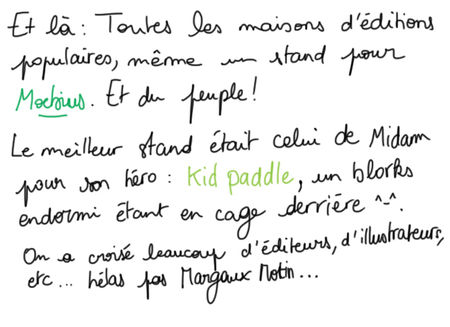 Et là : Toutes les maisons d'éditions
populaires, même un stand pour
Moebius. Et du peuple !
Le meilleur stand était celui de Midam
pour son héro : Kid paddle, un blorks
endormi étant en cage derrière ^-^.
On a croisé beaucoup d'éditeurs, d'illustrateurs,
etc... hélas pas Margaux Motin...